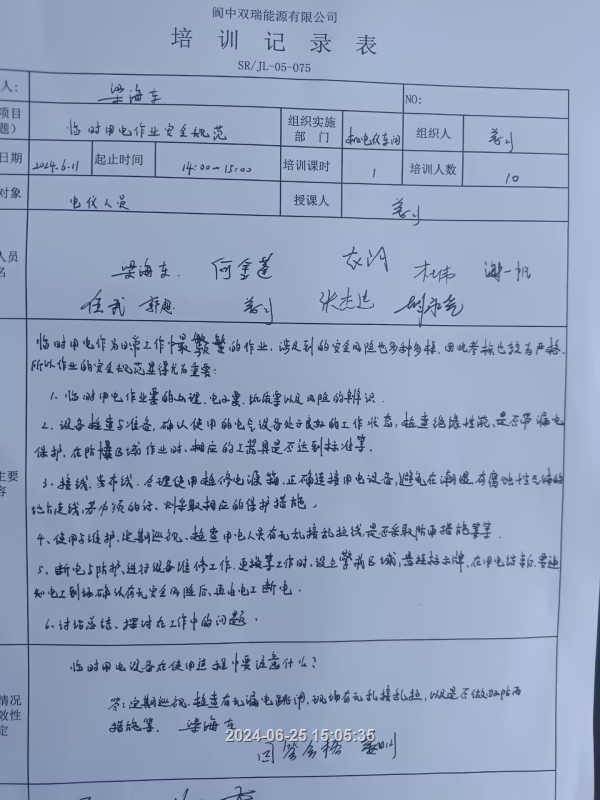 阆中双瑞能源有限公司
培训记录表
SR/JL-05-075
人： 梁海东 NO:
项目 临时用电作业安全规范 组织实施 组织人
题） 部门
日期 2024.6.11 起止时间 14:00-15:00 培训课时 1 培训人数 10
对象 电仪人员 授课人
人员 梁海东. 何金莲 谢一帆
名 任武 张杰
临时用电作为日常工作中最繁繁的作业，涉及到的安全风险也多种多样，因此考核也较为严格，
所以作业的安全规范显得尤为重要：
1、临时用电作业票的办理，电工票，纸质票以及风险的辨识．
2、设备检查与准备，确认使用的电气设备处于良好的工作状态，检查绝缘性能、是否带漏电
保护，在防爆区域作业时，相应的工器具是否达到标准等．
3、接线、安布线，合理使用检修电源箱，正确连接用电设备，避免在潮湿有腐蚀性气体的
地点走线，若必须的话，则采取相应的保护措施．
4、使用与维护，定期巡视，检查用电人员有无乱接乱拉线，是否采取防雨措施等等．
5、断电与防护，进行设备维修工作，更换等工作时，设立警戒区域，悬挂标示牌，在用电结束后，要通
知电工到场确认有无安全风险后，再由电工断电．
6、讨论总结，探讨在工作中的问题．
主要
容
临时用电设备在使用过程中要注意什么？
情况 答：定期巡视，检查有无漏电跳闸，现场有无乱接乱拉，以及是否做好防雨
效性 措施等． 梁海东
定 回答合格
2024-06-25 15:05:35